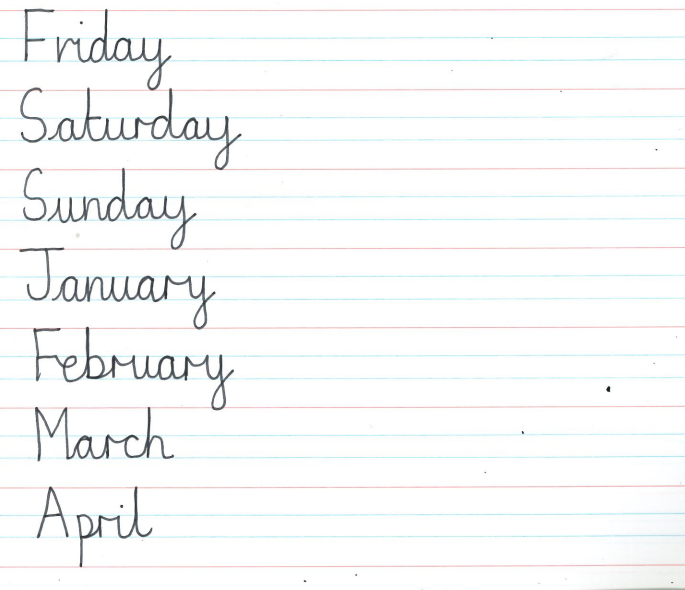 Friday
Saturday
Sunday
January
February
March
April